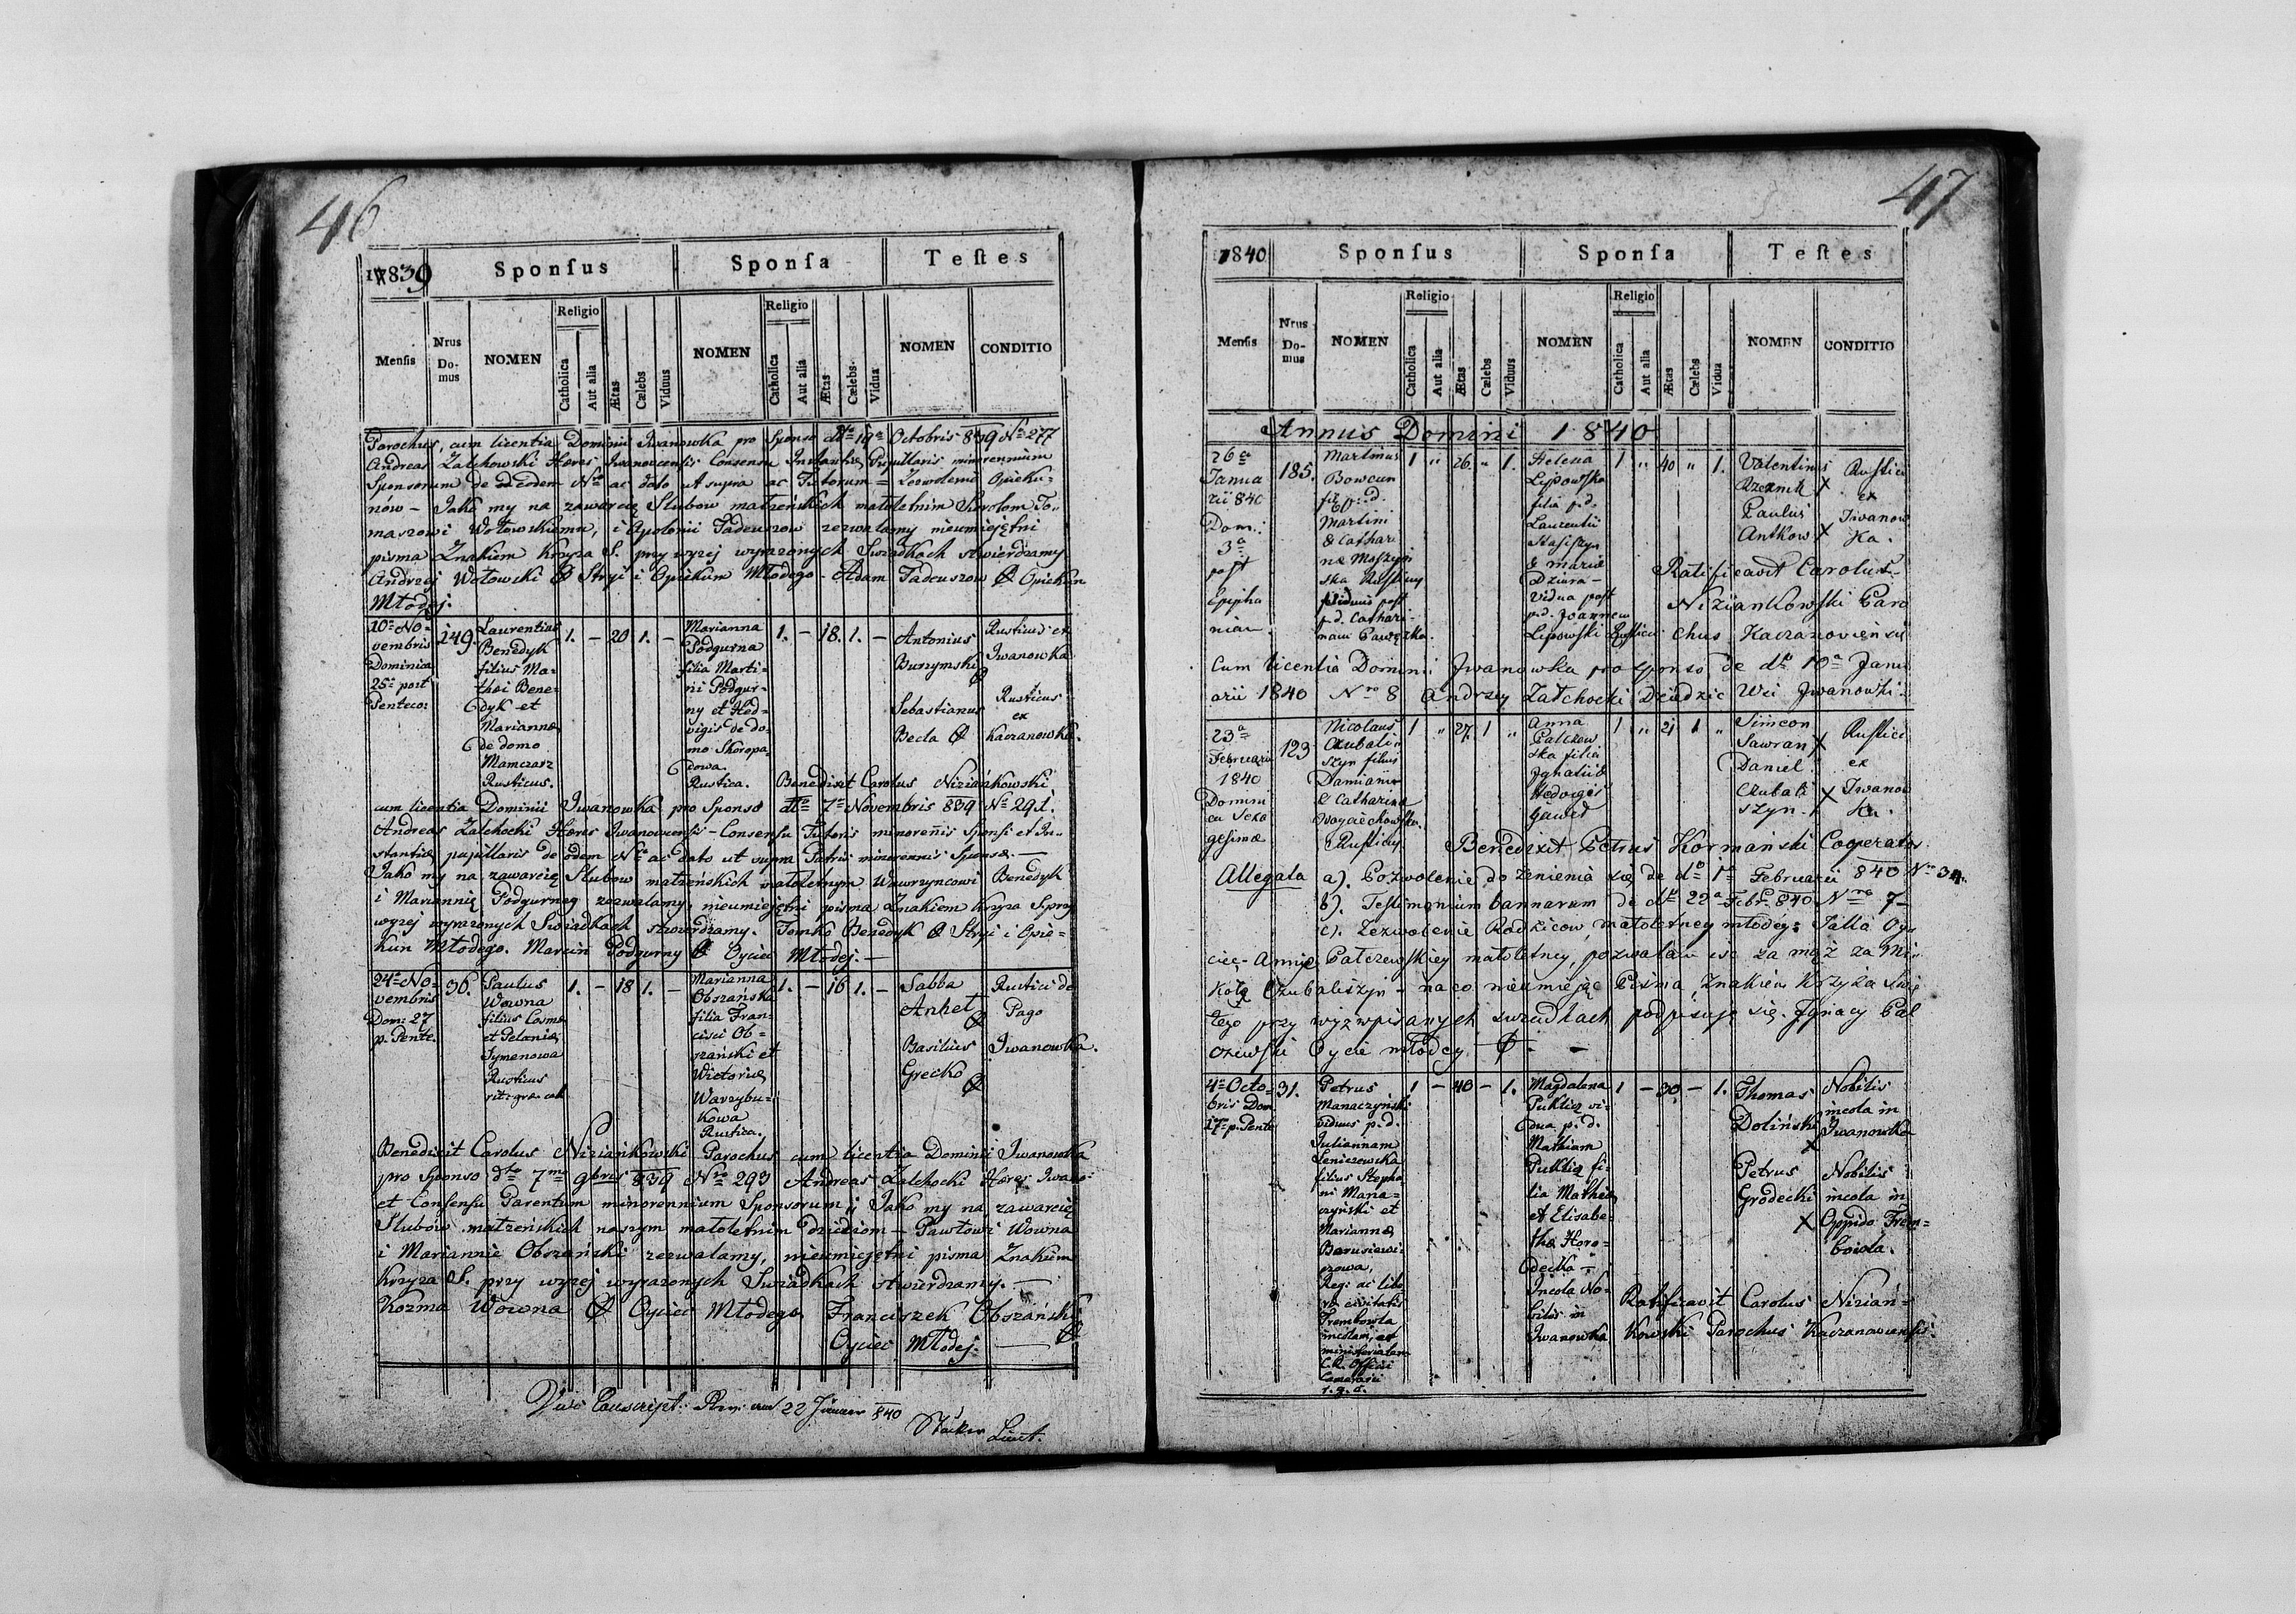 46
1839
Sponſus
Sponſa
Teſtes
Menſis
Nrus Do-mus
NOMEN
Religio
Catholica
Aut alia
Ætas
Cælebs
Viduus
NOMEN
Religio
Catholica
Aut alia
Ætas
Cælebs
Vidua
NOMEN
CONDITIO
Parochus, cum licentia Dominii Iwanowka pro Sponso dto 19a Octobris 839 No 277
Andreas Zalchowski Hæres Iwanovcensis Consensu Instantiæ Pupillaris minorennium
Sponsorum de eodem Nro ac dato ut supra ac Tutorum = Zezwolenie Opieku-
nów - Jako my na zawarcię Slubow małzeńskich małoletnim Sierotom To-
maszowi Wołowskiemu, i Apolonii Tadeuszow zezwalamy nieumiejętni
pisma Znakiem Krzyza S. przy wyzej wyrazonych Swiadkach stwierdzamy
Andrzej Wołowski Stryi i Opiekun Młodego - Adam Tadeuszow Opiekun
Młodej.
10a No-
vembris
Dominica
25a post
Penteco:
149.
Laurentius
Benedyk
filius Ma-
thæi Bene-
dyk et
Mariannæ
de domo
Mamczarz
Rusticus.
1. - 20 1. -
Marianna
Podgurna
filia Marti-
ni Podgur-
ny et Hed-
vigis de do-
mo Skoropa-
dowa.
Rustica.
1. - 18. 1. -
Antonius
Burzymski
Sebastianus
Becla
Rusticus ex
Iwanowka
Rusticus
ex
Kaczanowka.
Benedixit Carolus Niziańkowski
cum licentia Dominii Iwanowka pro Sponso dto 7a Novembris 839 No 291.
Andreas Zalchocki Hæres Iwanovcensis - Consensu Tutoris minorenis Sponsi et In-
stantiæ pupillaris de eodem Nro ac dato ut supra Patris minorennis Sponsæ. -
Jako my na zawarcię Slubow małzeńskich małoletnym Wawrzyncowi Benedyk
i Mariannię Podgurney zezwalamy, nieumiejętni pisma Znakiem Krzyza S przy
wyzej wyrazonych Swiadkach stwierdzamy. Tomko Benedyk Stryi i Opie-
kun Młodego. Marcin Podgurny Oyciec Młodej. -
24a No-
vembris
Dom: 27
p. Pente.
36.
Paulus
Wowna
filius Cosmæ
et Pelaniæ
Symenowa
Rusticus
rit: græ. cat
1. - 18 1. -
Marianna
Obszańska
filia Fran-
cisci Ob-
szański et
Wictoriæ
Warzybu-
kowa
Rustica.
1. - 16 1. -
Sabba
Anhet
Basilius
Grecko
Rustici de
Pago
Iwanowka.
Benedixit Carolus Niziańkowski Parochus cum licentia Dominii Iwanowka
pro Sponso dto 7ma 9bris 839 Nro 293 Andreas Zalchocki Hæres Iwano-
et Consensu Parentum minorennium Sponsorum ij Jako my na zawarcię
Slubów małzeńskich naszym małoletnim dzieciom - Pawłowi Wowna
i Mariannie Obszański zezwalamy, nieumiejętni pisma Znakiem
Krzyza S. przy wyzej wyrazonych Swiadkach stwierdzamy. -
Kozma Wowna Oyciec Młodego Franciszek Obszański
Oyciec Młodej. -
Vidi Conscript: Rev: am 22 Jänner 840
Lieut.
47
1840
Sponſus
Sponſa
Teſtes
Menſis
Nrus Do-mus
NOMEN
Religio
Catholica
Aut alia
Ætas
Cælebs
Viduus
NOMEN
Religio
Catholica
Aut alia
Ætas
Cælebs
Vidua
NOMEN
CONDITIO
Annus Domini 1840
26a
Janua
rii 840
Dom:
3a
post
Epipha
niam.
185.
Martinus
Bowcun
fil p. d.
Martini
& Cathari
næ Maszyń
ska Rusticus
viduus post
p.d. Cathari-
nam Pawęzka.
1 " 26. " 1.
Helena
Lipowska
filia p. d.
Laurentii
Stasiszyn
& Mariæ
Dziura -
Vidua post
p.d. Joannem
Lipowski Rustica
1 " 40 " 1.
Valentinus
Rzeznik x
Paulus
Antkow x
Rustici
ex
Iwanow
ka.
Ratificavit Carolus
Niziankowski Paro
chus Kaczanoviensis
Cum licentia Dominii Iwanowka pro sponso de dto 10a Janu
arii 1840 Nro 8 Andrzey Załchocki Dziedzic Wsi Iwanowki.
23a
Februarii
1840
Domini
ca Sexa
gesimæ
123
Nicolaus
Czubali
szyn filius
Damiani
& Catharinæ
Woyciechowska.
Rusticus
1 " 27. 1 "
Anna
Palczew
ska filia
Ignatii &
Hedvigis
Gawed
1 " 21 1 "
Simeon
Sawran x
Daniel
Czubali x
szyn.
Rustici
ex
Iwanow
ka.
Benedixit Petrus Kormański Cooperator
Allegata a). Pozwolenie do żenienia się de dto 1a Februarii 840 Nro 34.
b). Testimonium bannarum de dto 22a Febr. 840 Nro 7-
c). Zezwolenie Rodziców małoletney młodey: Jako Oy-
ciec Annie Palczewskiey małoletney, pozwalam isć za mąż za Mi-
kołę Czubaliszyn - na co nieumiejąc Pisma, Znakiem Krzyża Swię
tego przy wyż wpisanych swiadkach podpisuję się. Ignacy Pal
czewski Oyciec młodey -
4a Octo-
bris Dom
17a p. Pente
31.
Petrus
Manaczyński
viduus p. d.
Juliannam
Leniczewska
filius Stepha
ni Mana-
czyński et
Mariannæ
Barusiewi-
czowa,
Reg: ac libe
ræ civitatis
Trembowla
incola, ac
ministerialem
C.R. Officii
Camerarii
1 - 40 - 1.
Magdalena
Puklicz vi-
dua p. d.
Mathiam
Puklicz fi-
lia Mathei
et Elisabe-
thæ Horo-
decka -
Incola No-
bilis in
Iwanowka
1 - 30 - 1.
Thomas
Doliński
x
Petrus
Grodecki
x
Nobilis
incola in
Iwanowka
Nobilis
incola in
Oppido Trem-
bowla.
Ratificavit Carolus Nizian-
kowski Parochus Kaczanoviensis